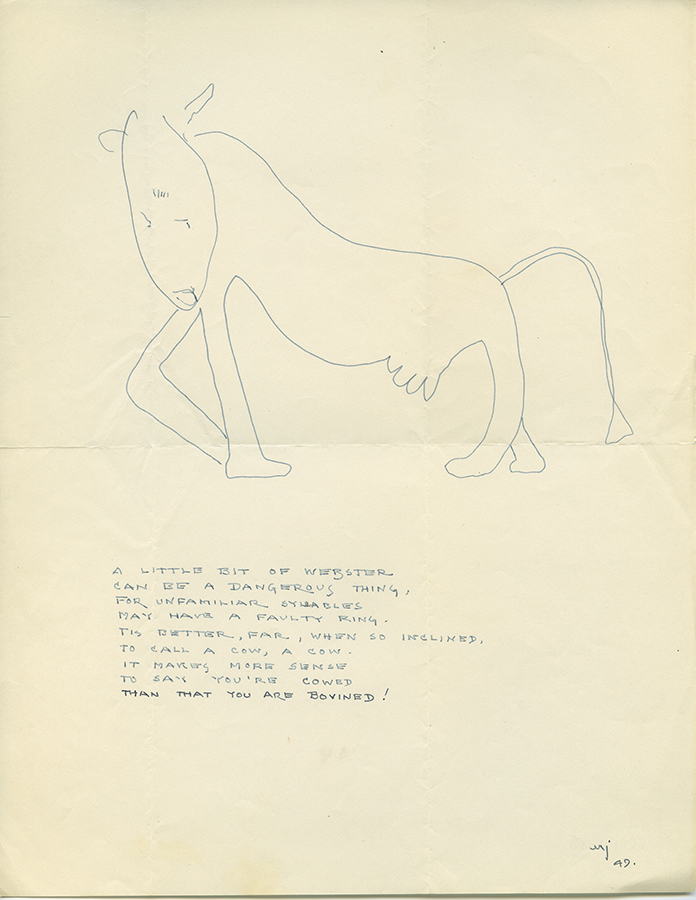 A LITTLE BIT OF WEBSTER
CAN BE A DANGEROUS THING,
FOR UNFAMILIAR SYLLABLES
MAY HAVE A FAULTY RING.
TIS BETTER, FAR, WHEN SO INCLINED,
TO CALL A COW, A COW.
IT MAKES MORE SENSE
TO SAY YOU'RE COWED
THAN THAT YOU ARE BOVINED!
49.